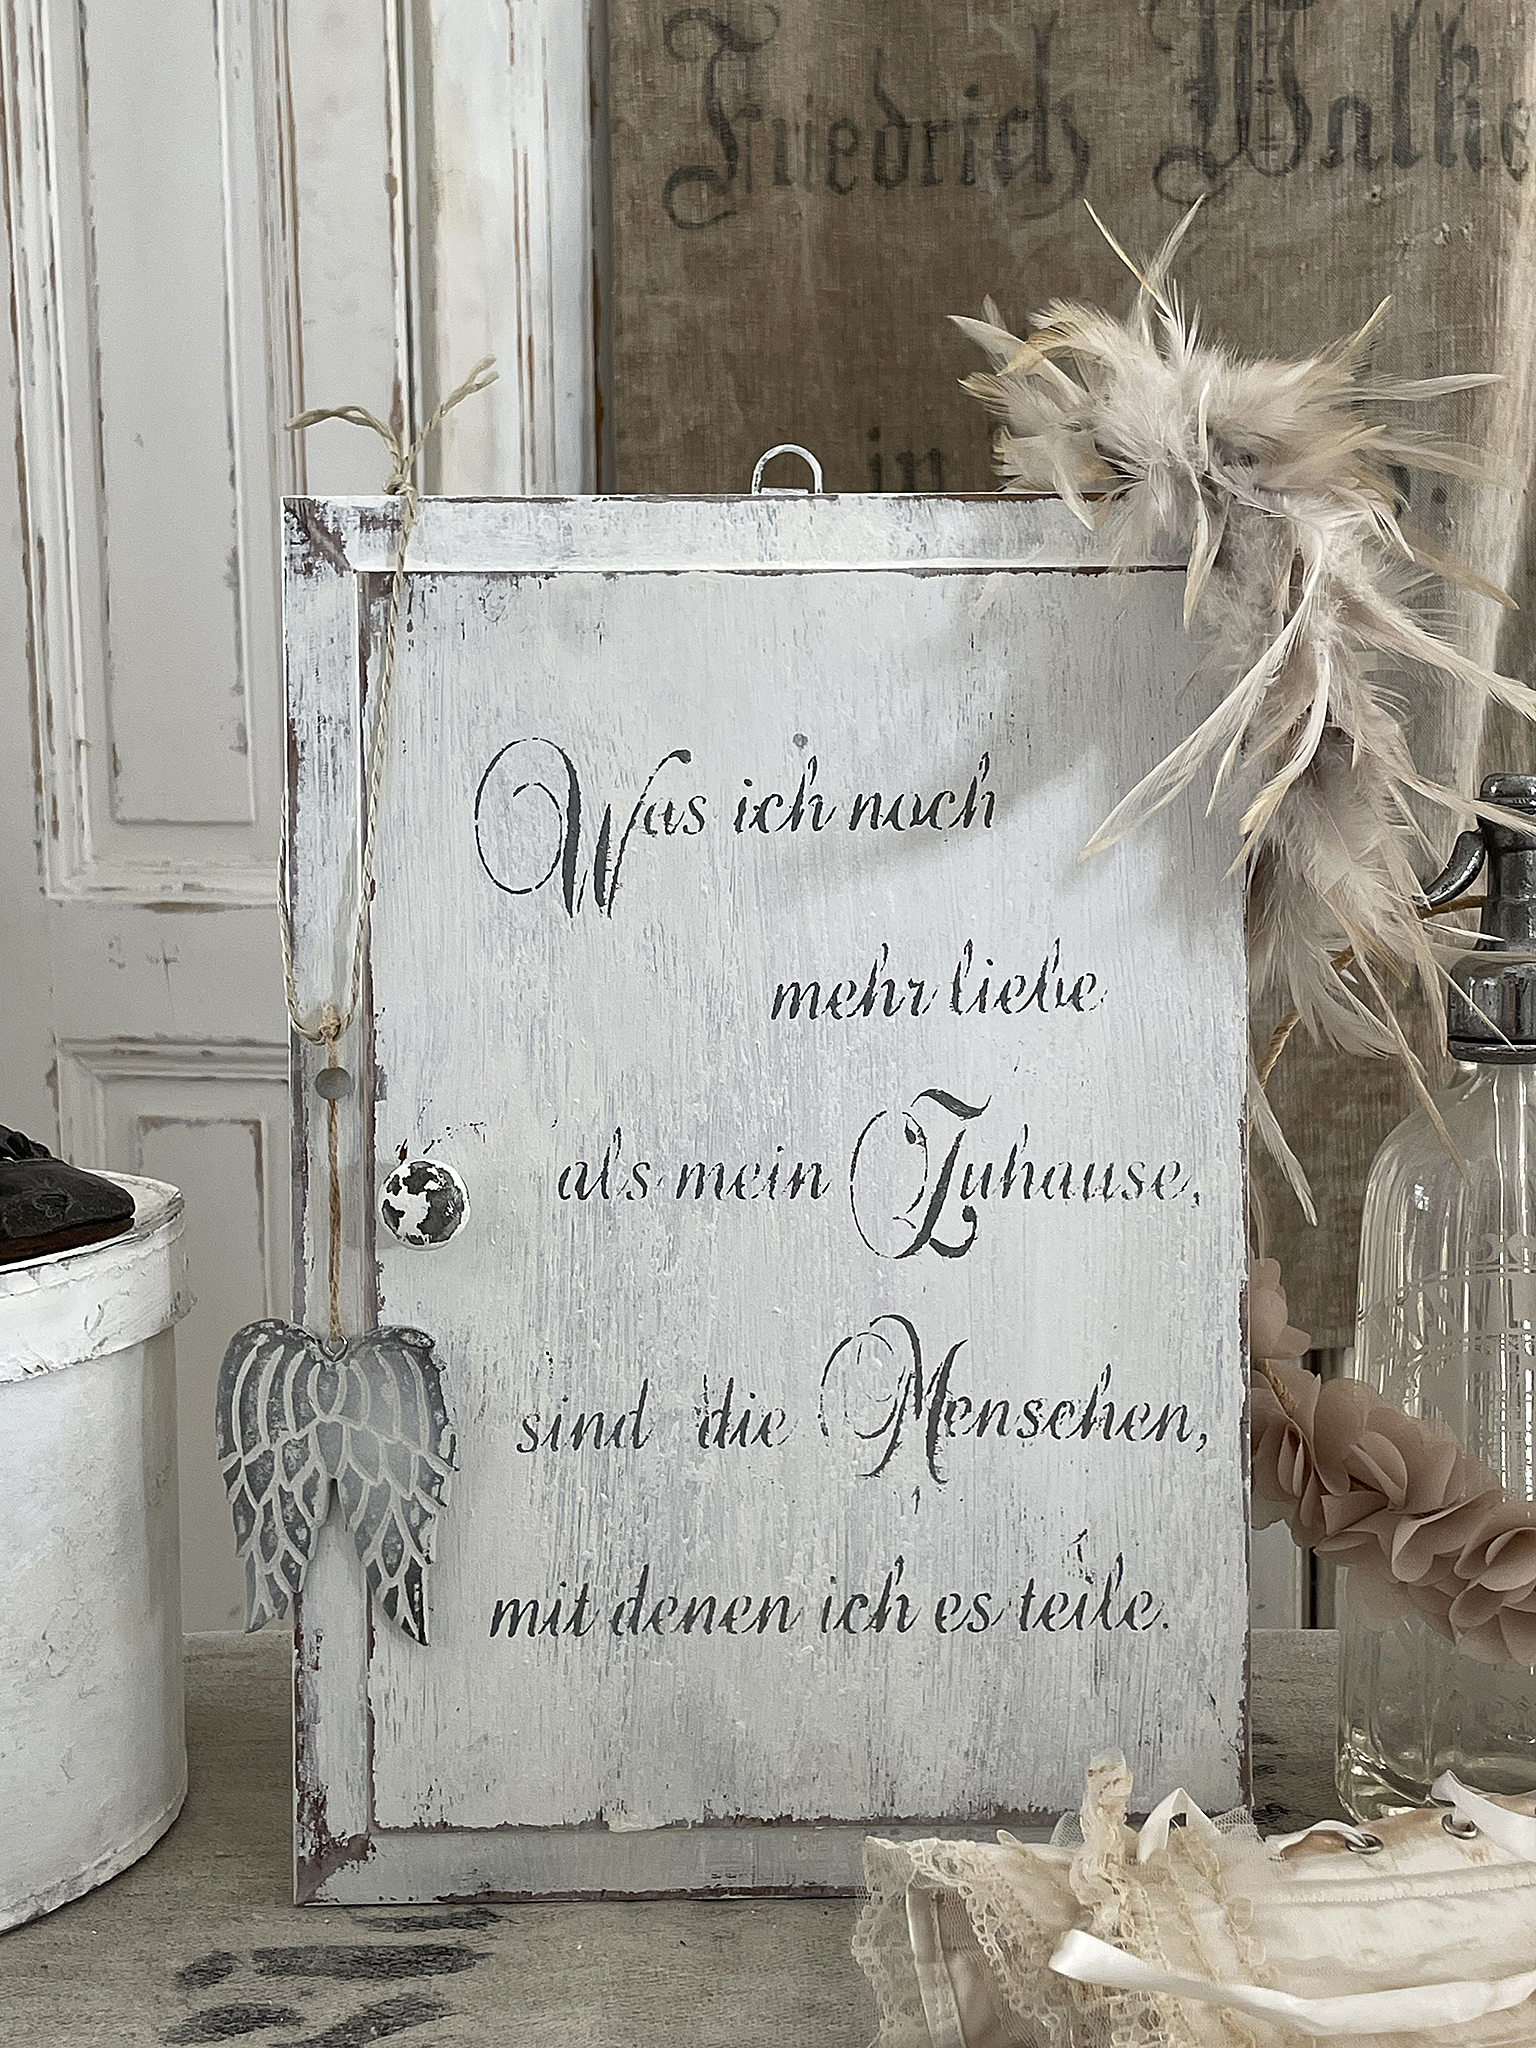 Friedrich
in
Was ich noch
mehr liebe
als mein Zuhause,
sind die Menschen,
mit denen ich es teile.